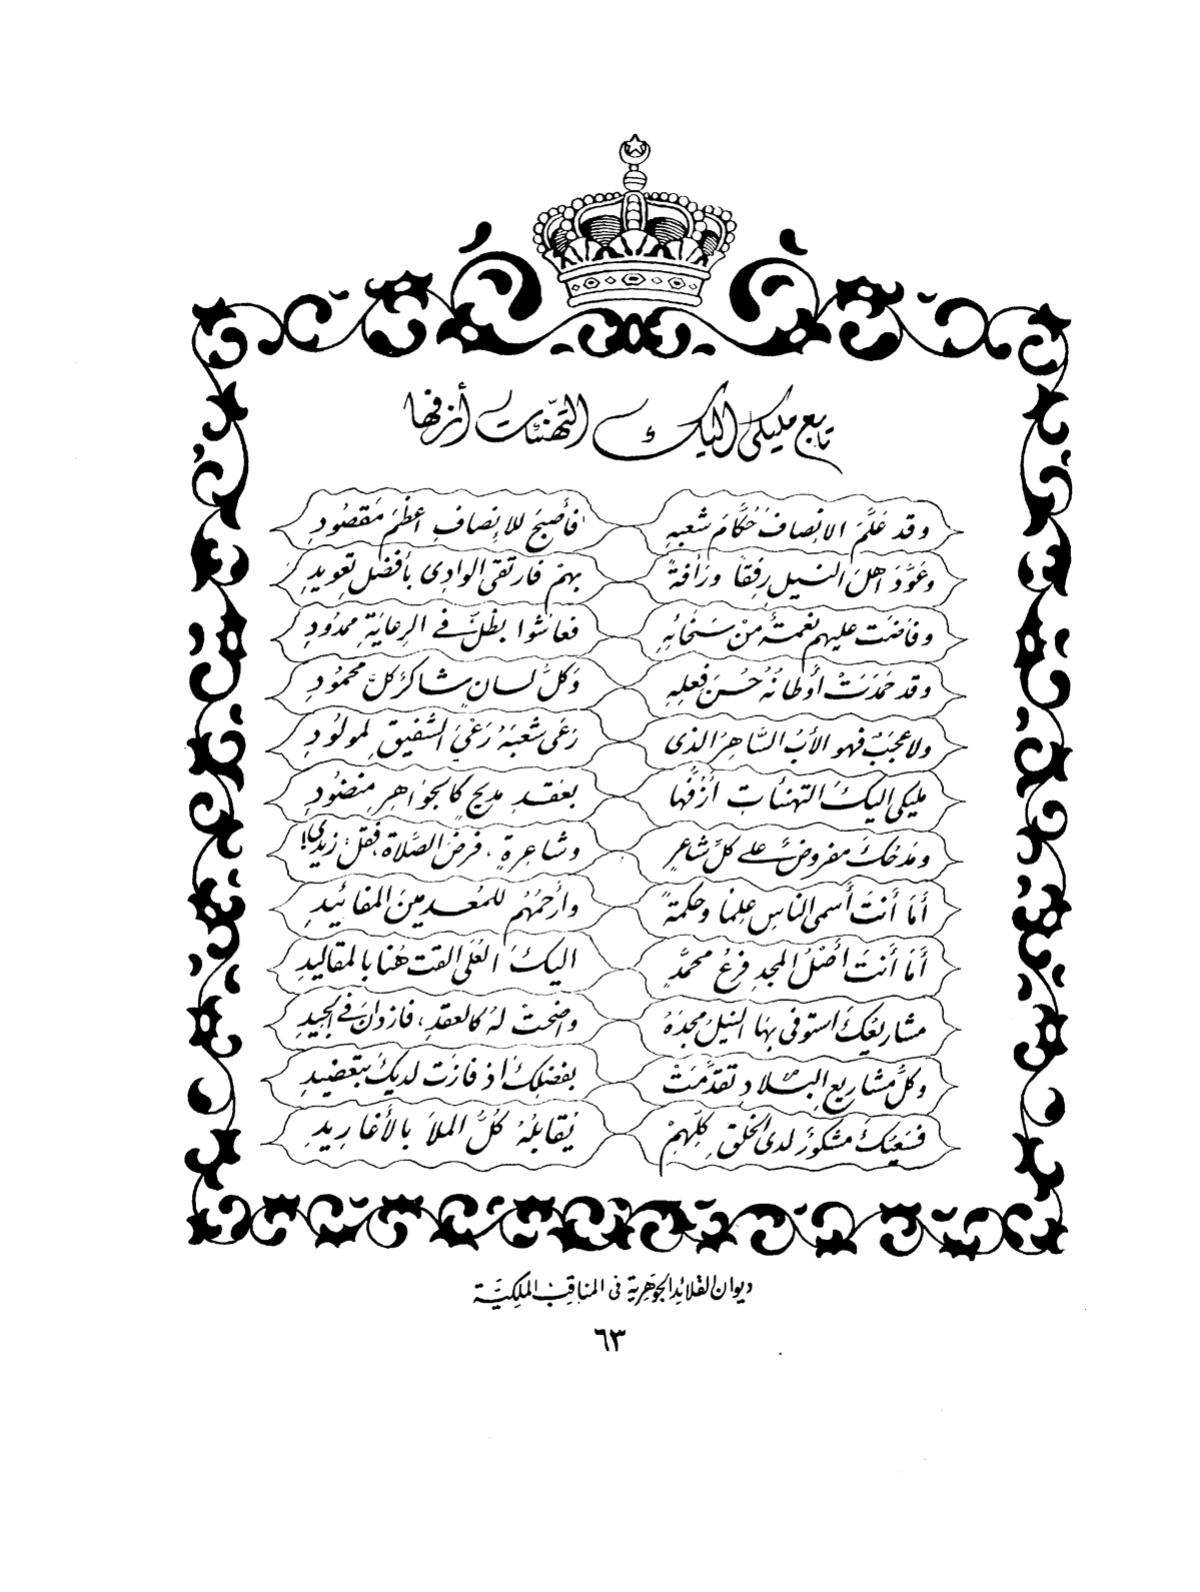 تابع مليكى اليك التهنئات أزفها
وقد عَلَّمَ الانصافَ حُكَّامَ شعبهِ فأصبحَ للإنصافِ اعظمَ مَقصُودِ
وعَوَّدَ اهلَ النيلِ رِفقاً ورَأفةً بهم فارتقى الوادِى بأفضلِ تعويدِ
وفاضَت عليهم نعمةٌ مِنْ سَخائِهِ فعاشوا بظلٍّ فى الرِعايَةِ ممدُودِ
وقد حَمَدَتْ أوطانُهُ حُسنَ فعلِهِ وَكلُّ لسانٍ شاكرٌ كلَّ محمُودِ
ولا عجبٌ فهو الأبُ السَّاهِرُ الذى رَعَى شعبَهُ رَعْىَ الشَّفيقِ لمولُودِ
مليكى اليكَ التهنئاتِ أزُفُّها بعقدِ مديحٍ كالجواهِرِ منضُودِ
ومَدحُكَ مفروضٌ على كلِّ شاعرٍ وشاعِرةٍ، فرضَ الصَّلاة، فقل زيدِي!
أمَا أنتَ أسمى الناسِ عِلماً وحكمةً وأرحَمُهُم للمُعدمينَ المفائيدِ
أمَا أنتَ أصْلُ المجدِ فرعُ محمَّدٍ اليكَ العُلَى القت هُنا بالمقاليدِ
مشاريعُكَ استوفى بهَا النيلُ مجدَهُ واضحتْ لهُ كالعقدِ، فازدانَ فى الجيدِ
وكلُّ مشاريعِ البلادِ تقدَّمَتْ بفضلِكَ اذ فازَت لديكَ بتعضيدِ
فسَعيُكَ مشكورٌ لدى الخلقِ كلِّهِمْ يُقابلُهُ كُلُّ الملاَ بالأغارِيدِ
ديوان القلائد الجوهرية فى المناقب الملكيَّة
٦٣